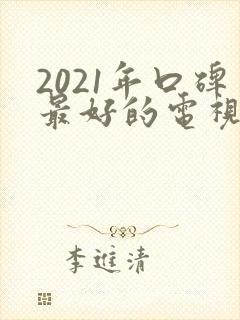 2021年口碑
最好的電視
李進清